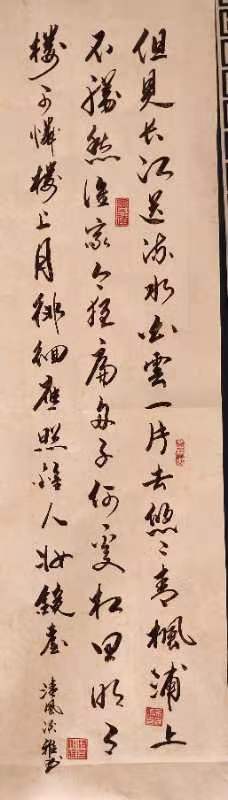 但見长江送流水白雲一片去悠〻青楓浦上
不勝愁誰家今夜扁舟子何處相思明月
樓可憐樓上月徘徊應照離人妝鏡臺
清風淡雅书